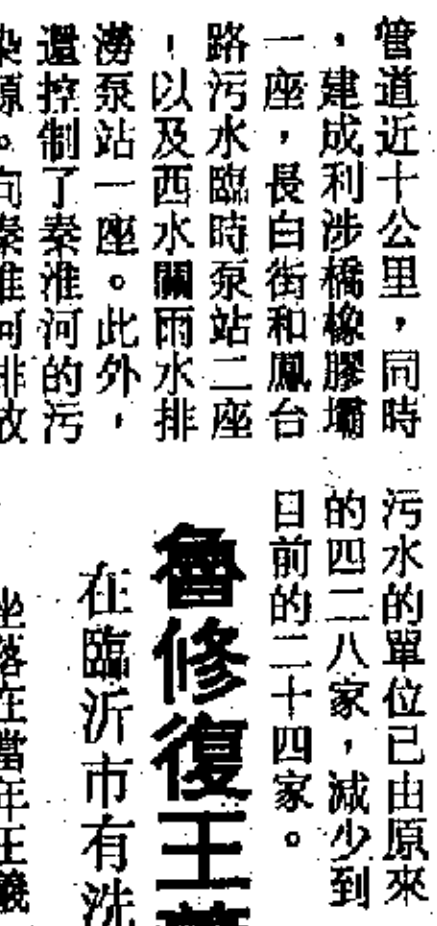 管道近十公里，同時
，建成利涉橋橡膠壩
一座，長白街和鳳台
路污水臨時泵站二座
，以及西水關雨水排
澇泵站一座。此外，
還控制了秦淮河的污
染源。向秦淮河排放
污水的單位已由原來
的四二八家，減少到
目前的二十四家。
魯修復王
在臨沂市有洗
坐落在當年王羲